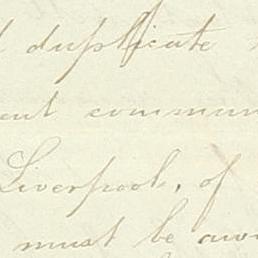 duplicate
communi
Liverpool, of
must be awa